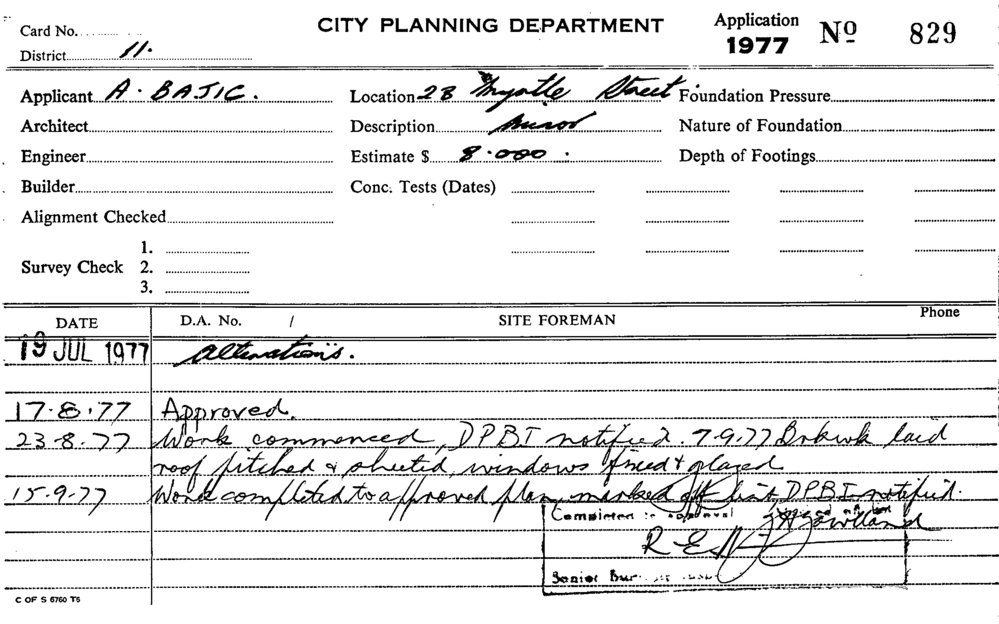 CITY PLANNING DEPARTMENT
Application
1977 Nº 829
Card No.
District 11.
Applicant A. BAJIC.
Location 2B Myrtle Street.
Foundation Pressure
Architect
Description Minor
Nature of Foundation
Engineer
Estimate $ 8.000.
Depth of Footings
Builder
Conc. Tests (Dates)
Alignment Checked
Survey Check
1.
2.
3.
DATE
D.A. No. /
SITE FOREMAN
Phone
19 JUL 1977 Alterations.
17.8.77 Approved.
23.8.77 Work commenced, DPBI notified. 7.9.77 Brkwk laid
roof pitched & sheeted, windows fixed & glazed
15.9.77 Work completed to approved plan, marked off list DPBI notified.
Completed
Senior
C OF S 6760 T6